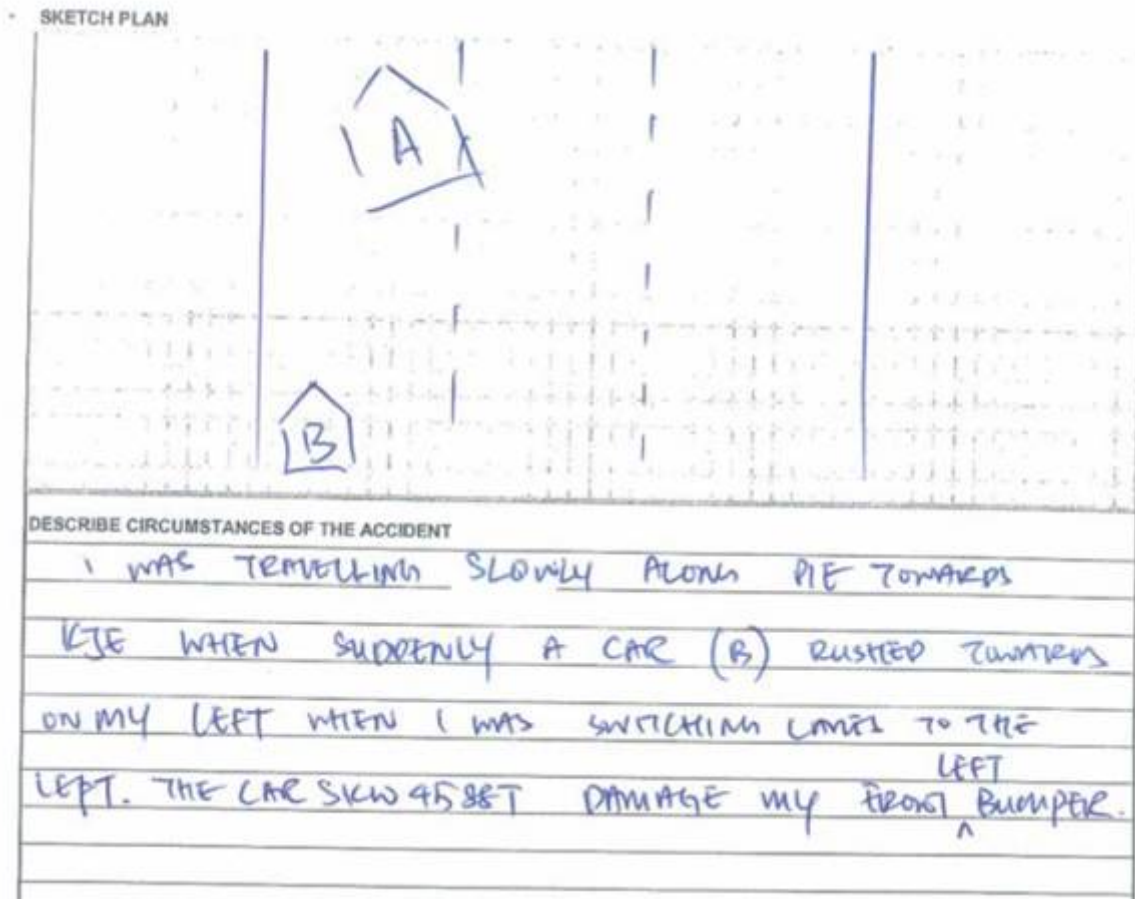 SKETCH PLAN
A
B
DESCRIBE CIRCUMSTANCES OF THE ACCIDENT
I WAS TRAVELLING SLOWLY ALONG PIE TOWARDS
KJE WHEN SUDDENLY A CAR (B) RUSHED TOWARDS
ON MY LEFT WHEN I WAS SWITCHING LANES TO THE
LEFT
LEFT. THE CAR SKW 4588T DAMAGE MY FRONT ^ BUMPER.